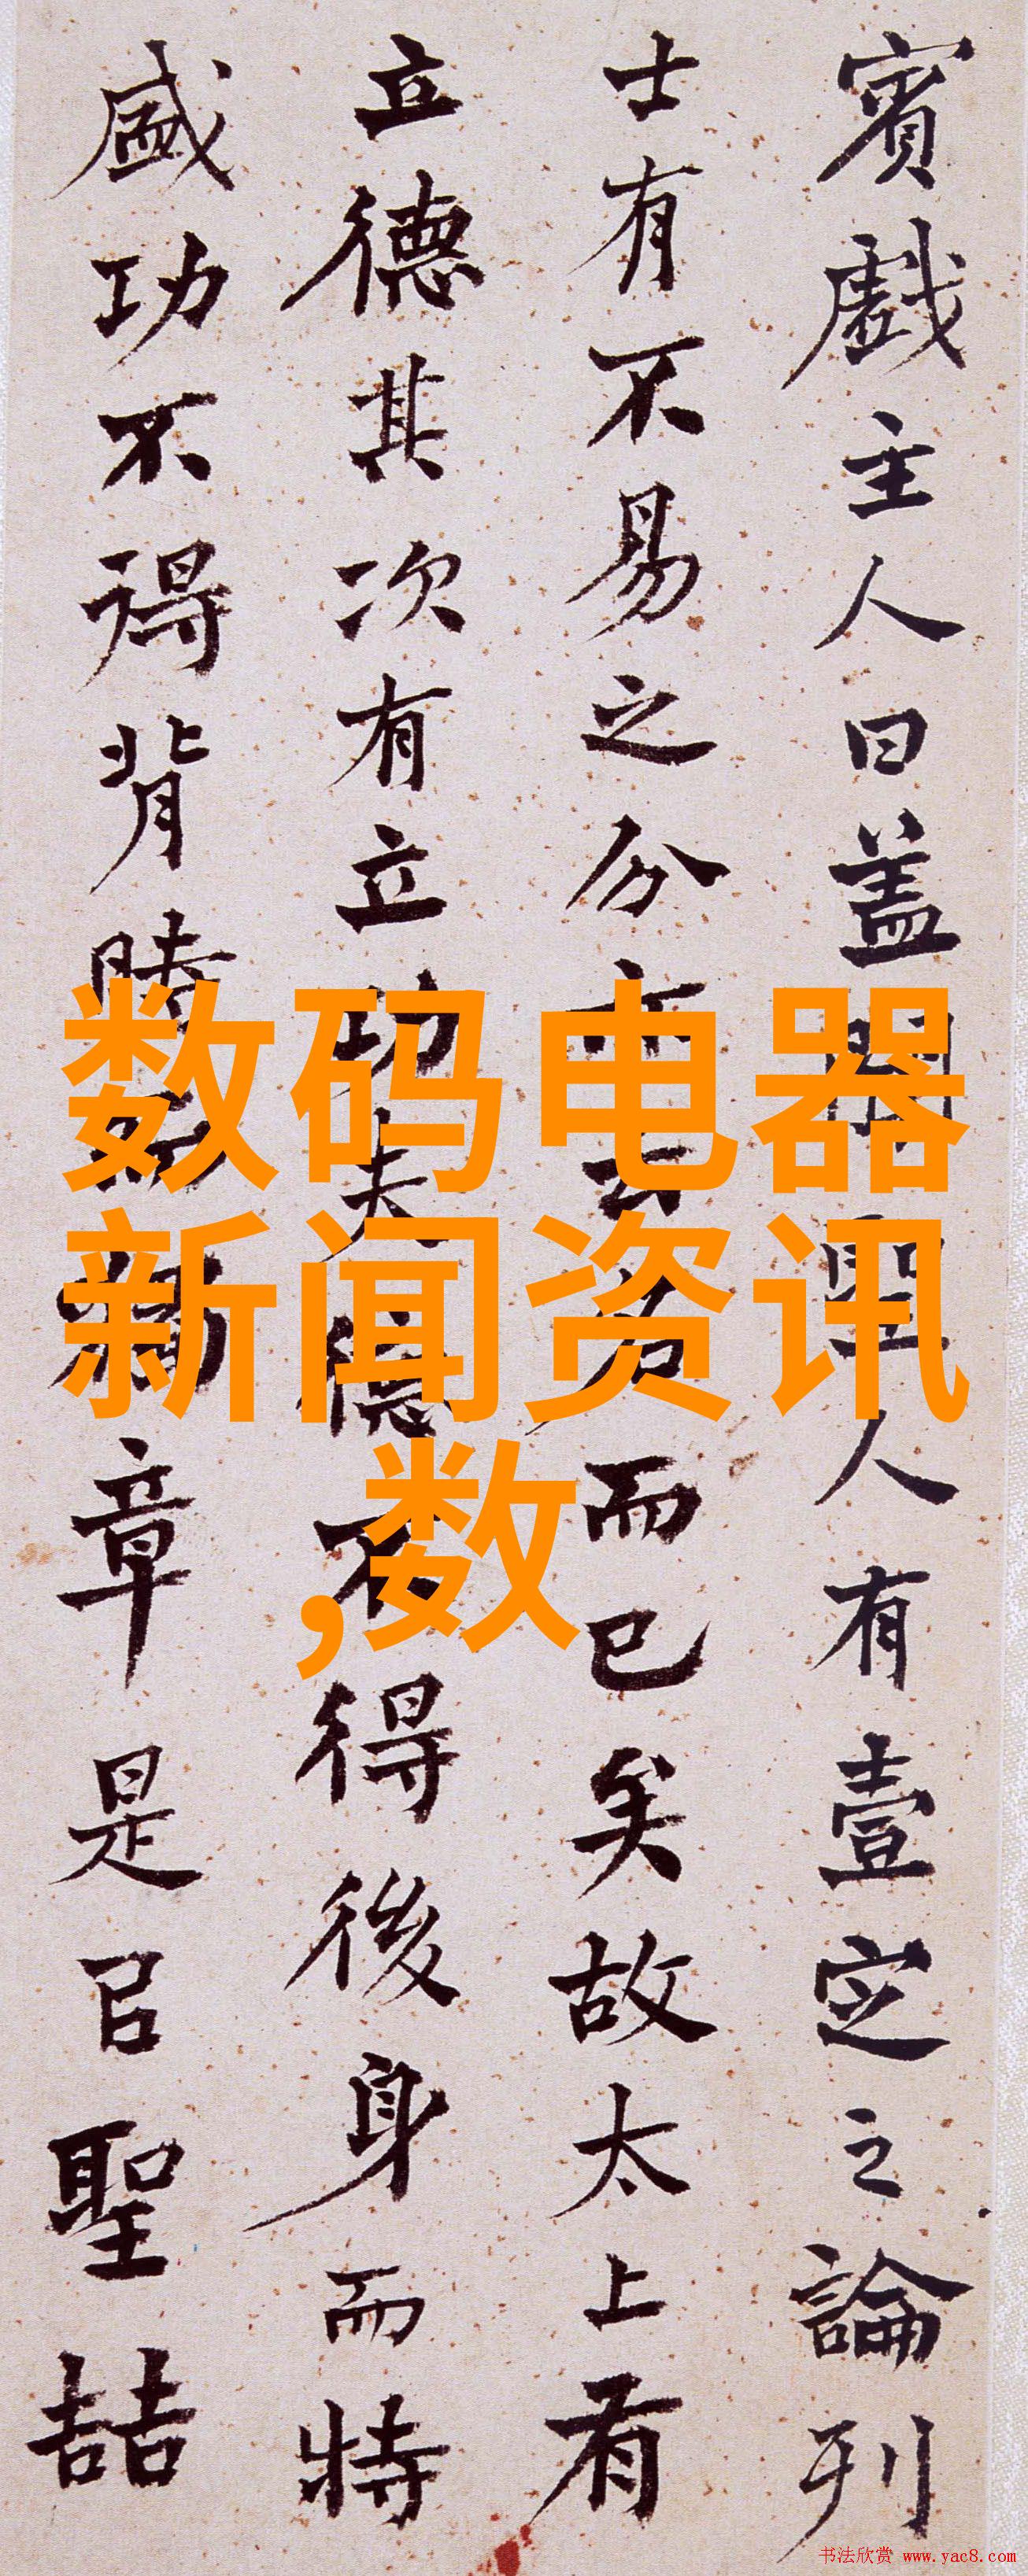 賓戲主人曰蓋聞聖人有壹定之論列
士有不易之分亦云名而已矣故太上有
立德其次有立功夫德不得後身而特
盛功不得背時而獨章是㠯聖喆
数码电器
新闻资讯
,数
书法欣赏 www.yac8.com